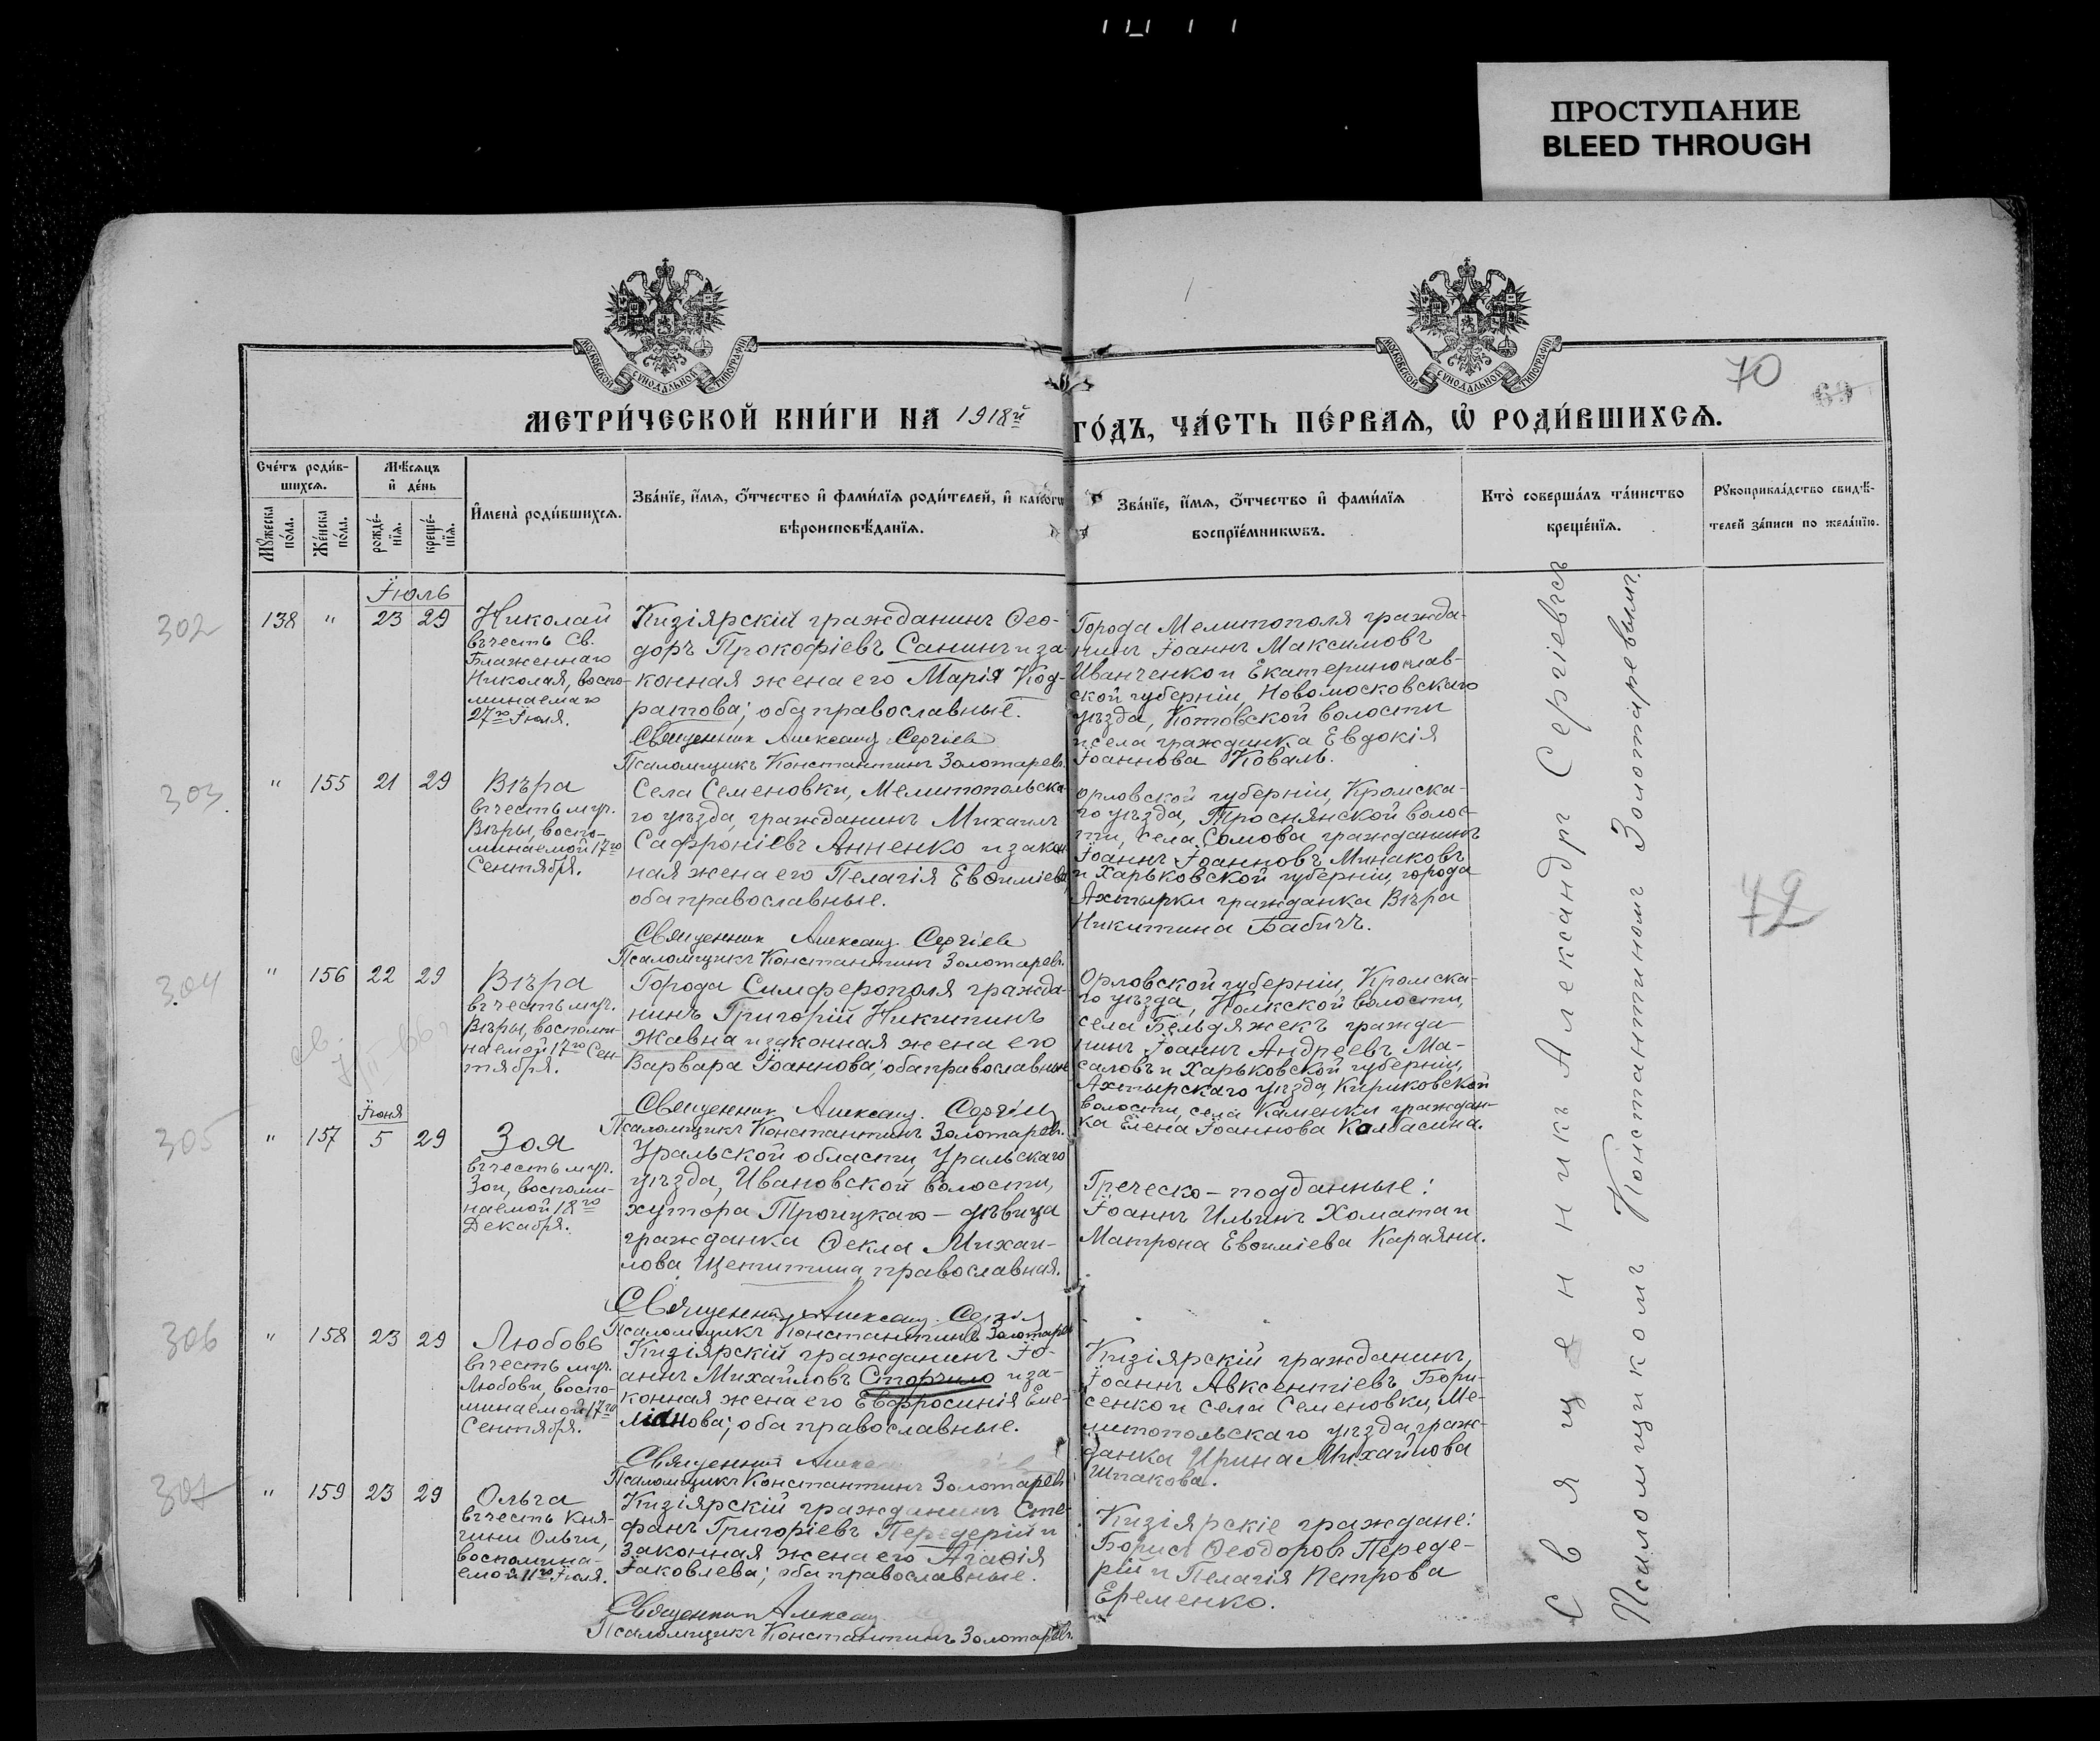 ПРОСТУПАНИЕ
BLEED THROUGH
МОСКОВСКОЙ СѴНОДАЛЬНОЙ ТИПОГРАФІИ
МОСКОВСКОЙ СѴНОДАЛЬНОЙ ТИПОГРАФІИ
70
69
МЕТРИ́ЧЕСКОЙ КНИ́ГИ НА 1918й
ГО́ДЪ, ЧА́СТЬ ПЕ́РВАѦ, Ѿ РОДИ́ВШИХСѦ.
Сче́тъ роди́в-
шихсѧ.
Мꙋ́жеска по́ла.
Же́нска по́ла.
Мѣ́сѧцъ
и҆ де́нь
рожде́-
нїѧ.
креще́-
нїѧ.
И҆мена̀ роди́вшихсѧ.
Зва́нїе, и҆́мѧ, ѻ҆́тчество и҆ фами́лїѧ роди́телей, и҆ како́гѡ
вѣроисповѣ́данїѧ.
Зва́нїе, и҆́мѧ, ѻ҆́тчество и҆ фами́лїѧ
воспрїе́мникѡвъ.
Кто̀ соверша́лъ та́инство
креще́нїѧ.
Рꙋкоприкла́дство свидѣ́-
телей за́писи по жела́нїю.
Іюль
302
138 " 23 29
Николай
въ честь Св.
Блаженнаго
Николая, воспо-
минаемаго
27го Іюля.
Кизіярскій гражданинъ Ѳео-
доръ Прокофіевъ Санинъ и за-
конная жена его Марія Код-
ратова; оба православные.
Священник Александ Сергіев
Псаломщикъ Константинъ Золотаревъ.
Города Мелитополя гражда-
нинъ Іоаннъ Максимовъ
Иванченко и Екатеринослав-
ской губерніи, Новомосковскаго
уѣзда, Котовской волости
и села гражданка Евдокія
Іоаннова Коваль.
303
" 155 21 29
Вѣра
въ честь муч.
Вѣры, воспо-
минаемой 17го
Сентября.
Села Семеновки, Мелитопольска-
го уѣзда, гражданинъ Михаилъ
Сафроніевъ Анненко и закон-
ная жена его Пелагія Евѳиміева
оба православные.
Священник Александ Сергіев
Псаломщикъ Константинъ Золотаревъ.
Орловской губерніи, Кромска-
го уѣзда, Троснянской волос-
ти, села Сомова гражданинъ
Іоаннъ Іоанновъ Минаковъ
и Харьковской губерніи, города
Ахтырки гражданка Вѣра
Никитина Бабичъ.
72
304
" 156 22 29
Вѣра
въ честь муч.
Вѣры, воспоми-
наемой 17го Сен-
тября.
Города Симферополя гражда-
нинъ Григорій Никитинъ
Жавна и законная жена его
Варвара Іоаннова; оба православные
Священник Александ. Сергіев
Псаломщикъ Константинъ Золотаревъ.
Орловской губерніи, Кромска-
го уѣзда, волости,
села Бельдяжекъ гражда-
нинъ Іоаннъ Андреевъ Ма-
саловъ и Харьковской губерніи,
Ахтырскаго уѣзда, Кириковской
волости, села Каменки граждан-
ка Елена Іоаннова Колбасина.
Іюня
305
" 157 5 29
Зоя
въ честь муч.
Зои, воспоми-
наемой 18го
Декабря.
Уральской области, Уральскаго
уѣзда, Ивановской волости,
хутора Троицкаго – дѣвица
гражданка Ѳекла Михаи-
лова Щетитина, православная.
Священник Александ. Сергіев
Псаломщикъ Константинъ Золотарев
Греческо-подданные:
Іоаннъ Ильинъ Хомата и
Матрона Евѳиміева Караяни.
306
" 158 23 29
Любовь
въ честь муч.
Любови, воспо-
минаемой 17го
Сентября.
Кизіярскій гражданинъ Іо-
аннъ Михайловъ Сторчило и за-
конная жена его Евфросинія Еме-
ліанова; оба православные.
Священник
Псаломщикъ Константинъ Золотаревъ
Кизіярскій гражданинъ,
Іоаннъ Авксентіевъ Бори-
сенко и села Семеновки, Ме-
литопольскаго уѣзда граж-
данка Ирина Михайлова
Шпакова.
307
" 159 23 29
Ольга
въ честь Кня-
гини Ольги,
воспомина-
емой 11го Іюля.
Кизіярскій гражданинъ Сте-
фанъ Григоріевъ Передерій и
законная жена его Агаѳія
Іаковлева; оба православные.
Священник Александ
Псаломщикъ Константинъ Золотаревъ.
Кизіярскіе граждане:
Борисъ Ѳеодоровъ Переде-
рій и Пелагія Петрова
Еременко.
Священникъ Александръ Сергіевъ съ
Псаломщикомъ Константиномъ Золотаревымъ.